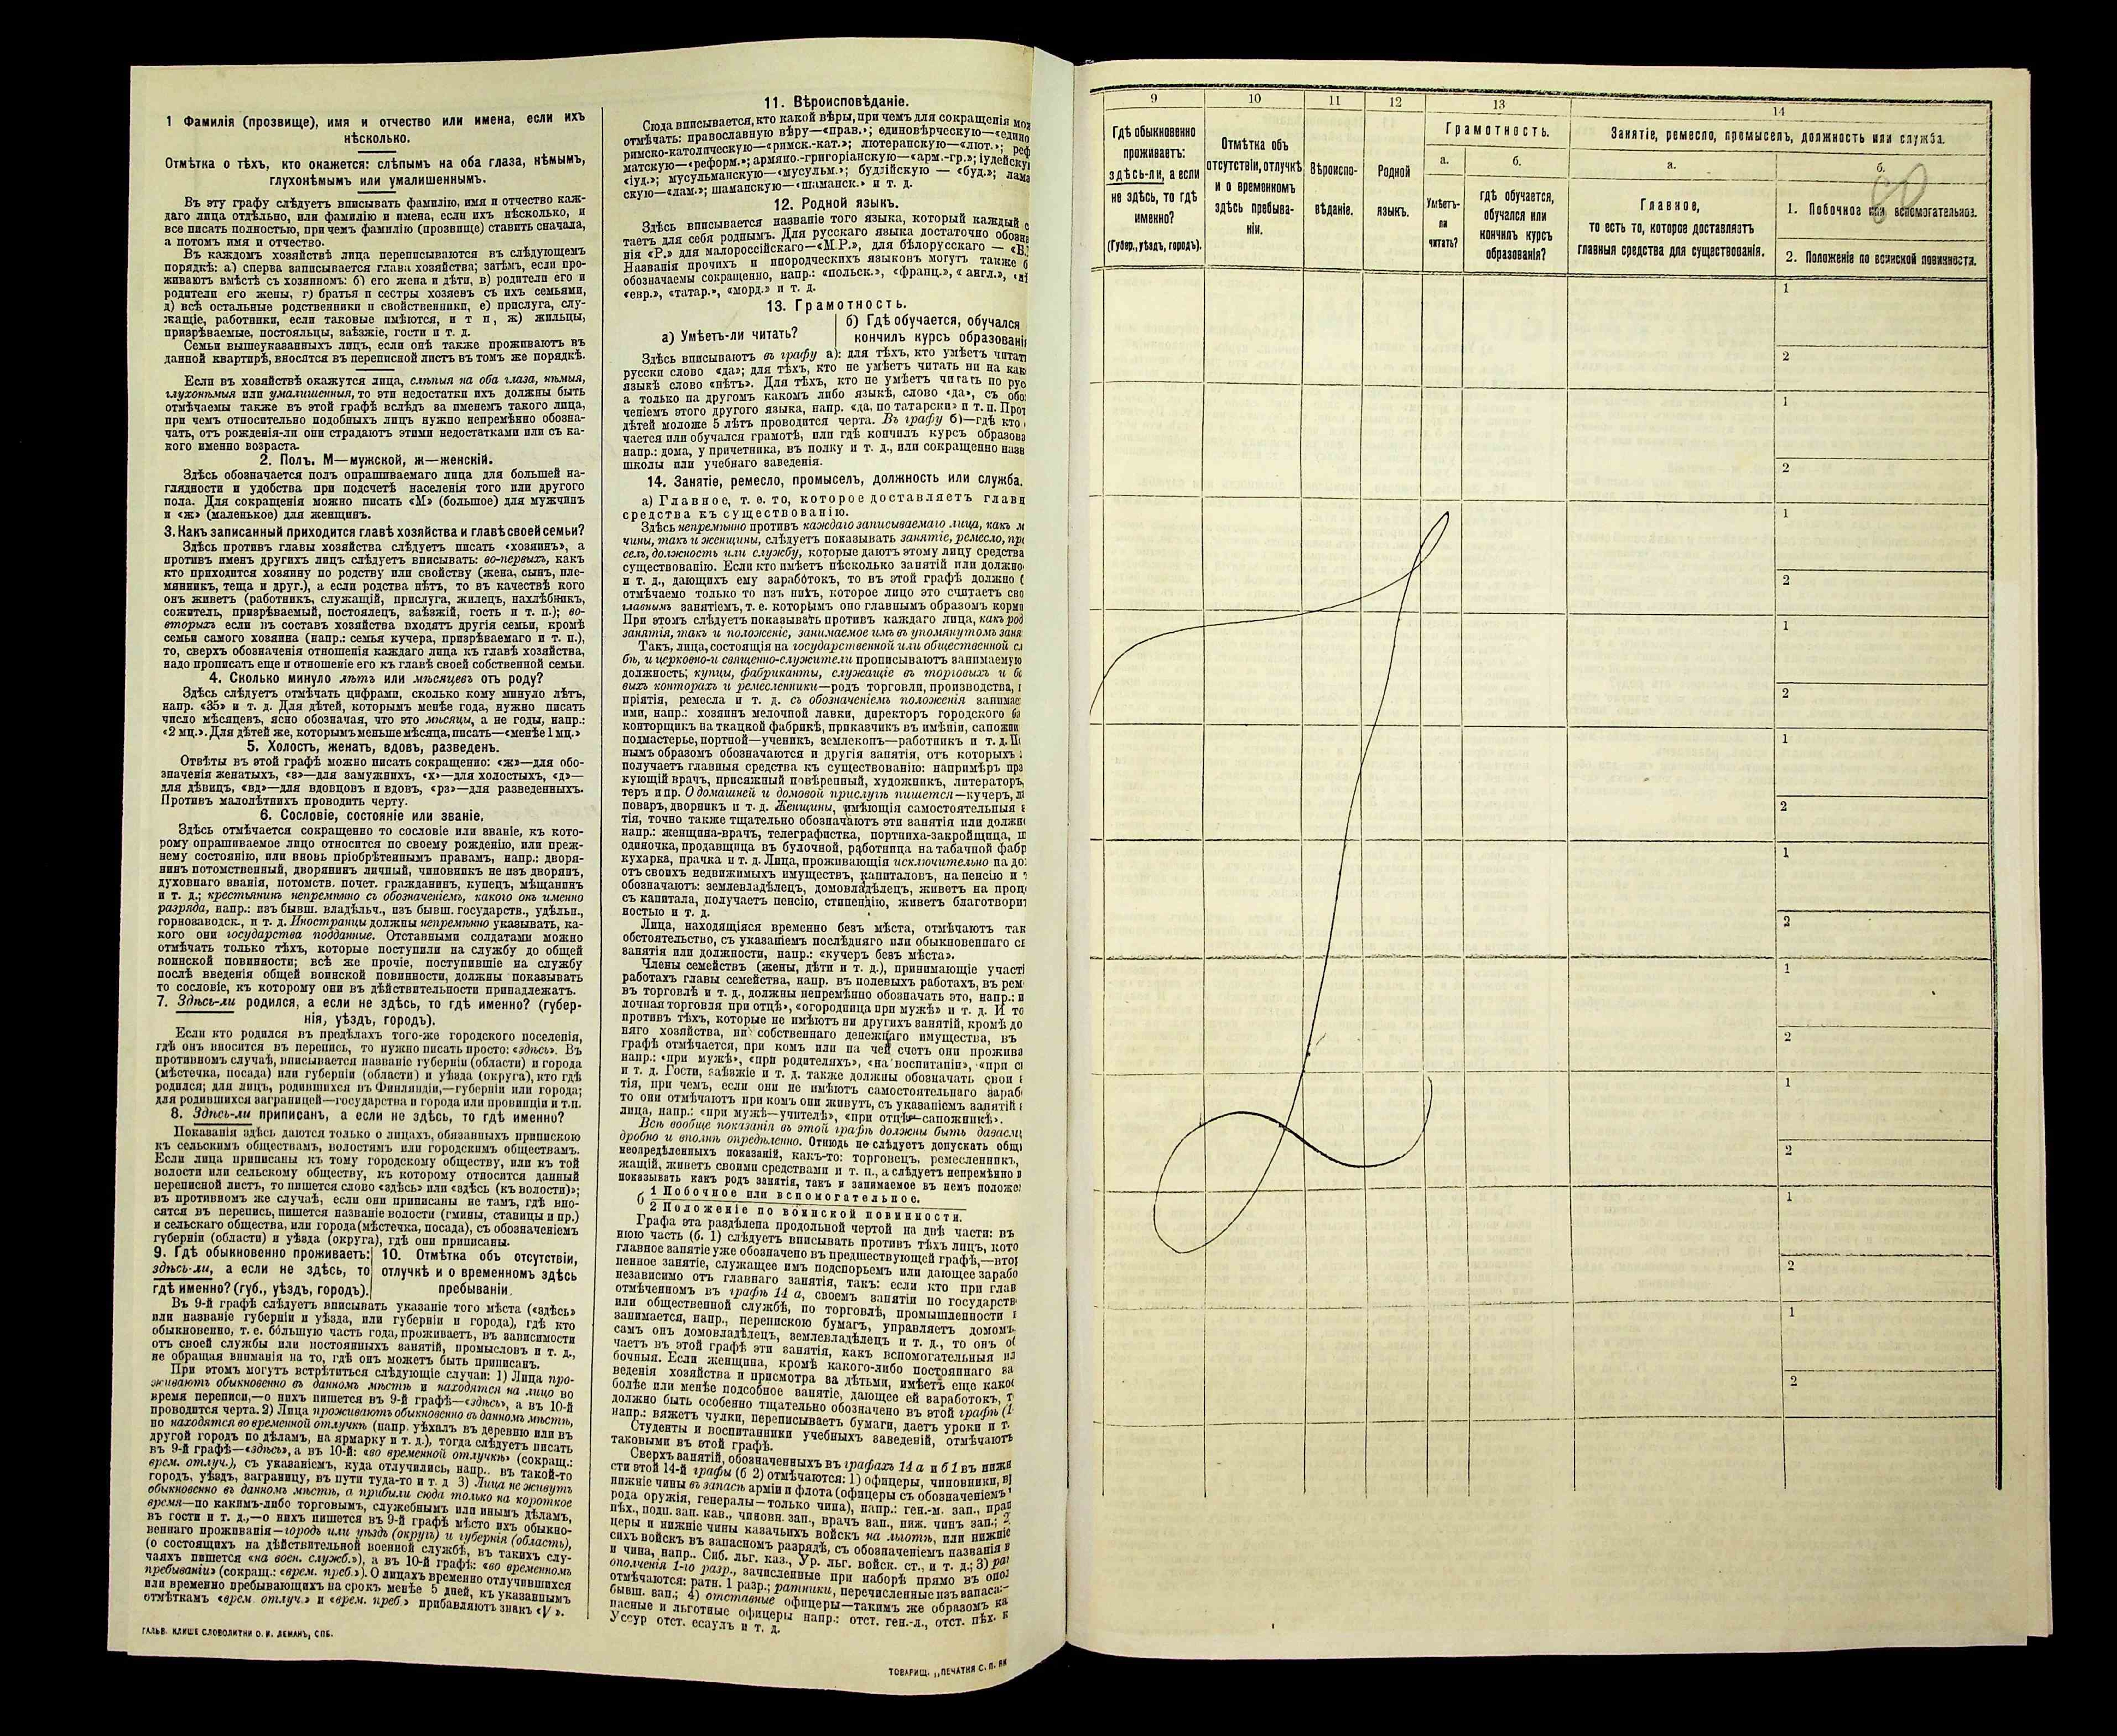 1 Фамилія (прозвище), имя и отчество или имена, если ихъ
нѣсколько.
Отмѣтка о тѣхъ, кто окажется: слѣпымъ на оба глаза, нѣмымъ,
глухонѣмымъ или умалишеннымъ.
Въ эту графу слѣдуетъ вписывать фамилію, имя и отчество каж-
даго лица отдѣльно, или фамилію и имена, если ихъ нѣсколько, и
все писать полностью, при чемъ фамилію (прозвище) ставить сначала,
а потомъ имя и отчество.
Въ каждомъ хозяйствѣ лица переписываются въ слѣдующемъ
порядкѣ: а) сперва записывается глава хозяйства; затѣмъ, если про-
живаютъ вмѣстѣ съ хозяиномъ: б) его жена и дѣти, в) родители его и
родители его жены, г) братья и сестры хозяевъ съ ихъ семьями,
д) всѣ остальные родственники и свойственники, е) прислуга, слу-
жащіе, работники, если таковые имѣются, и т п, ж) жильцы,
призрѣваемые, постояльцы, заѣзжіе, гости и т. д.
Семьи вышеуказанныхъ лицъ, если онѣ также проживаютъ въ
данной квартирѣ, вносятся въ переписной листъ въ томъ же порядкѣ.
Если въ хозяйствѣ окажутся лица, слѣпыя на оба глаза, нѣмыя,
глухонѣмыя или умалишенныя, то эти недостатки ихъ должны быть
отмѣчаемы также въ этой графѣ вслѣдъ за именемъ такого лица,
при чемъ относительно подобныхъ лицъ нужно непремѣнно обозна-
чать, отъ рожденія-ли они страдаютъ этими недостатками или съ ка-
кого именно возраста.
2. Полъ. М—мужской, ж—женскій.
Здѣсь обозначается полъ опрашиваемаго лица для большей на-
глядности и удобства при подсчетѣ населенія того или другого
пола. Для сокращенія можно писать «М» (большое) для мужчинъ
и «ж» (маленькое) для женщинъ.
3. Какъ записанный приходится главѣ хозяйства и главѣ своей семьи?
Здѣсь противъ главы хозяйства слѣдуетъ писать «хозяинъ», а
противъ именъ другихъ лицъ слѣдуетъ вписывать: во-первыхъ, какъ
кто приходится хозяину по родству или свойству (жена, сынъ, пле-
мянникъ, теща и друг.), а если родства нѣтъ, то въ качествѣ кого
онъ живетъ (работникъ, служащій, прислуга, жилецъ, нахлѣбникъ,
сожитель, призрѣваемый, постоялецъ, заѣзжій, гость и т. п.); во-
вторыхъ если въ составъ хозяйства входятъ другія семьи, кромѣ
семьи самого хозяина (напр.: семья кучера, призрѣваемаго и т. п.),
то, сверхъ обозначенія отношенія каждаго лица къ главѣ хозяйства,
надо прописать еще и отношеніе его къ главѣ своей собственной семьи.
4. Сколько минуло лѣтъ или мѣсяцевъ отъ роду?
Здѣсь слѣдуетъ отмѣчать цифрами, сколько кому минуло лѣтъ,
напр. «35» и т. д. Для дѣтей, которымъ менѣе года, нужно писать
число мѣсяцевъ, ясно обозначая, что это мѣсяцы, а не годы, напр.:
«2 мц.». Для дѣтей же, которымъ меньше мѣсяца, писать—«менѣе 1 мц.»
5. Холостъ, женатъ, вдовъ, разведенъ.
Отвѣты въ этой графѣ можно писать сокращенно: «ж»—для обо-
значенія женатыхъ, «з»—для замужнихъ, «х»—для холостыхъ, «д»—
для дѣвицъ, «вд»—для вдовцовъ и вдовъ, «рз»—для разведенныхъ.
Противъ малолѣтнихъ проводить черту.
6. Сословіе, состояніе или званіе.
Здѣсь отмѣчается сокращенно то сословіе или званіе, къ кото-
рому опрашиваемое лицо относится по своему рожденію, или преж-
нему состоянію, или вновь пріобрѣтеннымъ правамъ, напр.: дворя-
нинъ потомственный, дворянинъ личный, чиновникъ не изъ дворянъ,
духовнаго званія, потомств. почет. гражданинъ, купецъ, мѣщанинъ
и т. д.; крестьянинъ непремѣнно съ обозначеніемъ, какого онъ именно
разряда, напр.: изъ бывш. владѣльч., изъ бывш. государств., удѣльн.,
горнозаводск., и т. д. Иностранцы должны непремѣнно указывать, ка-
кого они государства подданные. Отставными солдатами можно
отмѣчать только тѣхъ, которые поступили на службу до общей
воинской повинности; всѣ же прочіе, поступившіе на службу
послѣ введенія общей воинской повинности, должны показывать
то сословіе, къ которому они въ дѣйствительности принадлежатъ.
7. Здѣсь-ли родился, а если не здѣсь, то гдѣ именно? (губер-
нія, уѣздъ, городъ).
Если кто родился въ предѣлахъ того-же городского поселенія,
гдѣ онъ вносится въ перепись, то нужно писать просто: «здѣсь». Въ
противномъ случаѣ, вписывается названіе губерніи (области) и города
(мѣстечка, посада) или губерніи (области) и уѣзда (округа), кто гдѣ
родился; для лицъ, родившихся въ Финляндіи,—губерніи или города;
для родившихся заграницей—государства и города или провинціи и т.п.
8. Здѣсь-ли приписанъ, а если не здѣсь, то гдѣ именно?
Показанія здѣсь даются только о лицахъ, обязанныхъ припискою
къ сельскимъ обществамъ, волостямъ или городскимъ обществамъ.
Если лица приписаны къ тому городскому обществу, или къ той
волости или сельскому обществу, къ которому относится данный
переписной листъ, то пишется слово «здѣсь» или «здѣсь (къ волости)»;
въ противномъ же случаѣ, если они приписаны не тамъ, гдѣ вно-
сятся въ перепись, пишется названіе волости (гмины, станицы и пр.)
и сельскаго общества, или города (мѣстечка, посада), съ обозначеніемъ
губерніи (области) и уѣзда (округа), гдѣ они приписаны.
9. Гдѣ обыкновенно проживаетъ:
здѣсь-ли, а если не здѣсь, то
гдѣ именно? (губ., уѣздъ, городъ).
10. Отмѣтка объ отсутствіи,
отлучкѣ и о временномъ здѣсь
пребываніи.
Въ 9-й графѣ слѣдуетъ вписывать указаніе того мѣста («здѣсь»
или названіе губерніи и уѣзда, или губерніи и города), гдѣ кто
обыкновенно, т. е. бо́льшую часть года, проживаетъ, въ зависимости
отъ своей службы или постоянныхъ занятій, промысловъ и т. д.,
не обращая вниманія на то, гдѣ онъ можетъ быть приписанъ.
При этомъ могутъ встрѣтиться слѣдующіе случаи: 1) Лица про-
живаютъ обыкновенно въ данномъ мѣстѣ и находятся на лицо во
время переписи,—о нихъ пишется въ 9-й графѣ—«здѣсь», а въ 10-й
проводится черта. 2) Лица проживаютъ обыкновенно въ данномъ мѣстѣ,
но находятся во временной отлучкѣ (напр. уѣхалъ въ деревню или въ
другой городъ по дѣламъ, на ярмарку и т. д.), тогда слѣдуетъ писать
въ 9-й графѣ—«здѣсь», а въ 10-й: «во временной отлучкѣ» (сокращ.:
врем. отлуч.), съ указаніемъ, куда отлучились, напр.. въ такой-то
городъ, уѣздъ, заграницу, въ пути туда-то и т. д 3) Лица не живутъ
обыкновенно въ данномъ мѣстѣ, а прибыли сюда только на короткое
время—по какимъ-либо торговымъ, служебнымъ или инымъ дѣламъ,
въ гости и т. д.,—о нихъ пишется въ 9-й графѣ мѣсто ихъ обыкно-
веннаго проживанія—городъ или уѣздъ (округъ) и губернія (область),
(о состоящихъ на дѣйствительной военной службѣ, въ такихъ слу-
чаяхъ пишется «на воен. служб.»), а въ 10-й графѣ: «во временномъ
пребываніи» (сокращ.: «врем. преб.»). О лицахъ временно отлучившихся
или временно пребывающихъ на срокъ менѣе 5 дней, къ указаннымъ
отмѣткамъ «врем. отлуч.» и «врем. преб.» прибавляютъ знакъ «V».
ГАЛЬВ. КЛИШЕ СЛОВОЛИТНИ О. И. ЛЕМАНЪ, СПБ.
11. Вѣроисповѣданіе.
Сюда вписывается, кто какой вѣры, при чемъ для сокращенія
отмѣчать: православную вѣру—«прав.»; единовѣрческую—
римско-католическую—«римск.-кат.»; лютеранскую—«лют.»;
матскую—«реформ.»; армяно.-григоріанскую—«арм.-гр.»;
«іуд.»; мусульманскую—«мусульм.»; буддійскую — «буд.»;
скую—«лам.»; шаманскую—«шаманск.» и т. д.
12. Родной языкъ.
Здѣсь вписывается названіе того языка, который каждый
таетъ для себя роднымъ. Для русскаго языка достаточно
нія «Р.» для малороссійскаго—«М.Р.», для бѣлорусскаго —
Названія прочихъ и инородческихъ языковъ могутъ также
обозначаемы сокращенно, напр.: «польск.», «франц.», «англ.»,
«евр.», «татар.», «морд.» и т. д.
13. Грамотность.
а) Умѣетъ-ли читать?
б) Гдѣ обучается, обучался
кончилъ курсъ
Здѣсь вписываютъ въ графу а): для тѣхъ, кто умѣетъ
русски слово «да»; для тѣхъ, кто не умѣетъ читать ни на
языкѣ слово «нѣтъ». Для тѣхъ, кто не умѣетъ читать по
а только на другомъ какомъ либо языкѣ, слово «да», съ
ченіемъ этого другого языка, напр. «да, по татарски» и т. п.
дѣтей моложе 5 лѣтъ проводится черта. Въ графу б)—гдѣ кто
чается или обучался грамотѣ, или гдѣ кончилъ курсъ
напр.: дома, у причетника, въ полку и т. д., или сокращенно
школы или учебнаго заведенія.
14. Занятіе, ремесло, промыселъ, должность или служба.
а) Главное, т. е. то, которое доставляетъ
средства къ существованію.
Здѣсь непремѣнно противъ каждаго записываемаго лица, какъ
чины, такъ и женщины, слѣдуетъ показывать занятіе, ремесло,
селъ, должность или службу, которые даютъ этому лицу средства
существованію. Если кто имѣетъ нѣсколько занятій или
и т. д., дающихъ ему заработокъ, то въ этой графѣ должно
отмѣчаемо только то изъ нихъ, которое лицо это считаетъ
главнымъ занятіемъ, т. е. которымъ оно главнымъ образомъ
При этомъ слѣдуетъ показывать противъ каждаго лица, какъ
занятія, такъ и положеніе, занимаемое имъ въ упомянутомъ
Такъ, лица, состоящія на государственной или общественной
бѣ, и церковно-и священно-служители прописываютъ занимаемую
должность; купцы, фабриканты, служащіе въ торговыхъ и
выхъ конторахъ и ремесленники—родъ торговли, производства,
пріятія, ремесла и т. д. съ обозначеніемъ положенія
ими, напр.: хозяинъ мелочной лавки, директоръ городского
конторщикъ на ткацкой фабрикѣ, приказчикъ въ имѣніи,
подмастерье, портной—ученикъ, землекопъ—работникъ и т. д.
нымъ образомъ обозначаются и другія занятія, отъ которыхъ
получаетъ главныя средства къ существованію: напримѣръ
кующій врачъ, присяжный повѣренный, художникъ, литераторъ,
теръ и пр. О домашней и домовой прислугѣ пишется—кучеръ,
поваръ, дворникъ и т. д. Женщины, имѣющія самостоятельныя
тія, точно также тщательно обозначаютъ эти занятія или
напр.: женщина-врачъ, телеграфистка, портниха-закройщица,
одиночка, продавщица въ булочной, работница на табачной
кухарка, прачка и т. д. Лица, проживающія исключительно на
отъ своихъ недвижимыхъ имуществъ, капиталовъ, на пенсію и
обозначаютъ: землевладѣлецъ, домовладѣлецъ, живетъ на
съ капитала, получаетъ пенсію, стипендію, живетъ
ностью и т. д.
Лица, находящіяся временно безъ мѣста, отмѣчаютъ
обстоятельство, съ указаніемъ послѣдняго или обыкновеннаго
занятія или должности, напр.: «кучеръ безъ мѣста».
Члены семействъ (жены, дѣти и т. д.), принимающіе
работахъ главы семейства, напр. въ полевыхъ работахъ, въ
въ торговлѣ и т. д., должны непремѣнно обозначать это, напр.:
лочная торговля при отцѣ», «огородница при мужѣ» и т. д. И
противъ тѣхъ, которые не имѣютъ ни другихъ занятій, кромѣ
няго хозяйства, ни собственнаго денежнаго имущества, въ
графѣ отмѣчается, при комъ или на чей счетъ они
напр.: «при мужѣ», «при родителяхъ», «на воспитаніи»,
и т. д. Гости, заѣзжіе и т. д. также должны обозначать свои
тія, при чемъ, если они не имѣютъ самостоятельнаго
то они отмѣчаютъ при комъ они живутъ, съ указаніемъ занятій
лица, напр.: «при мужѣ—учителѣ», «при отцѣ—сапожникѣ».
Всѣ вообще показанія въ этой графѣ должны быть
дробно и вполнѣ опредѣленно. Отнюдь не слѣдуетъ допускать
неопредѣленныхъ показаній, какъ-то: торговецъ, ремесленникъ,
жащій, живетъ своими средствами и т. п., а слѣдуетъ непремѣнно
показывать какъ родъ занятія, такъ и занимаемое въ немъ
б 1 Побочное или вспомогательное.
2 Положеніе по воинской повинности.
Графа эта раздѣлена продольной чертой на двѣ части: въ
нюю часть (б. 1) слѣдуетъ вписывать противъ тѣхъ лицъ,
главное занятіе уже обозначено въ предшествующей графѣ,—
пенное занятіе, служащее имъ подспорьемъ или дающее
независимо отъ главнаго занятія, такъ: если кто при
отмѣченномъ въ графѣ 14 а, своемъ занятіи по
или общественной службѣ, по торговлѣ, промышленности
занимается, напр., перепискою бумагъ, управляетъ домомъ,
самъ онъ домовладѣлецъ, землевладѣлецъ и т. д., то онъ
чаетъ въ этой графѣ эти занятія, какъ вспомогательныя
бочныя. Если женщина, кромѣ какого-либо постояннаго
веденія хозяйства и присмотра за дѣтьми, имѣетъ еще
болѣе или менѣе подсобное занятіе, дающее ей заработокъ,
должно быть особенно тщательно обозначено въ этой графѣ
напр.: вяжетъ чулки, переписываетъ бумаги, даетъ уроки и т.
Студенты и воспитанники учебныхъ заведеній, отмѣчаютъ
таковыми въ этой графѣ.
Сверхъ занятій, обозначенныхъ въ графахъ 14 а и б 1 въ
сти этой 14-й графы (б 2) отмѣчаются: 1) офицеры, чиновники,
нижніе чины въ запасѣ арміи и флота (офицеры съ обозначеніемъ
рода оружія, генералы—только чина), напр.: ген.-м. зап.,
пѣх., подп. зап. кав., чиновн. зап., врачъ зап., ниж. чинъ зап.;
церы и нижніе чины казачьихъ войскъ на льготѣ, или нижніе
сихъ войскъ въ запасномъ разрядѣ, съ обозначеніемъ названія
и чина, напр.. Сиб. льг. каз., Ур. льг. войск. ст., и т. д.; 3)
ополченія 1-го разр., зачисленные при наборѣ прямо въ
отмѣчаются: ратн. 1 разр.; ратники, перечисленные изъ запаса:
бывш. зап.; 4) отставные офицеры—такимъ же образомъ
пасные и льготные офицеры напр.: отст. ген.-л., отст. пѣх.
Уссур отст. есаулъ и т. д.
ТОВАРИЩ. „ПЕЧАТНЯ С. П.
9 10 11 12 13 14
Гдѣ обыкновенно
проживаетъ:
здѣсь-ли, а если
не здѣсь, то гдѣ
именно?
(Губер., уѣздъ, городъ).
Отмѣтка объ
отсутствіи, отлучкѣ
и о временномъ
здѣсь пребыва-
ніи.
Вѣроиспо-
вѣданіе.
Родной
языкъ.
Грамотность.
а.
Умѣетъ-
ли
читать?
б.
гдѣ обучается,
обучался или
кончилъ курсъ
образованія?
Занятіе, ремесло, промыселъ, должность или служба.
а.
Главное,
то есть то, которое доставляетъ
главныя средства для существованія.
б.
1. Побочное или вспомогательное.
2. Положеніе по воинской повинности.
1
2
1
2
1
2
1
2
1
2
1
2
1
2
1
2
1
2
1
2